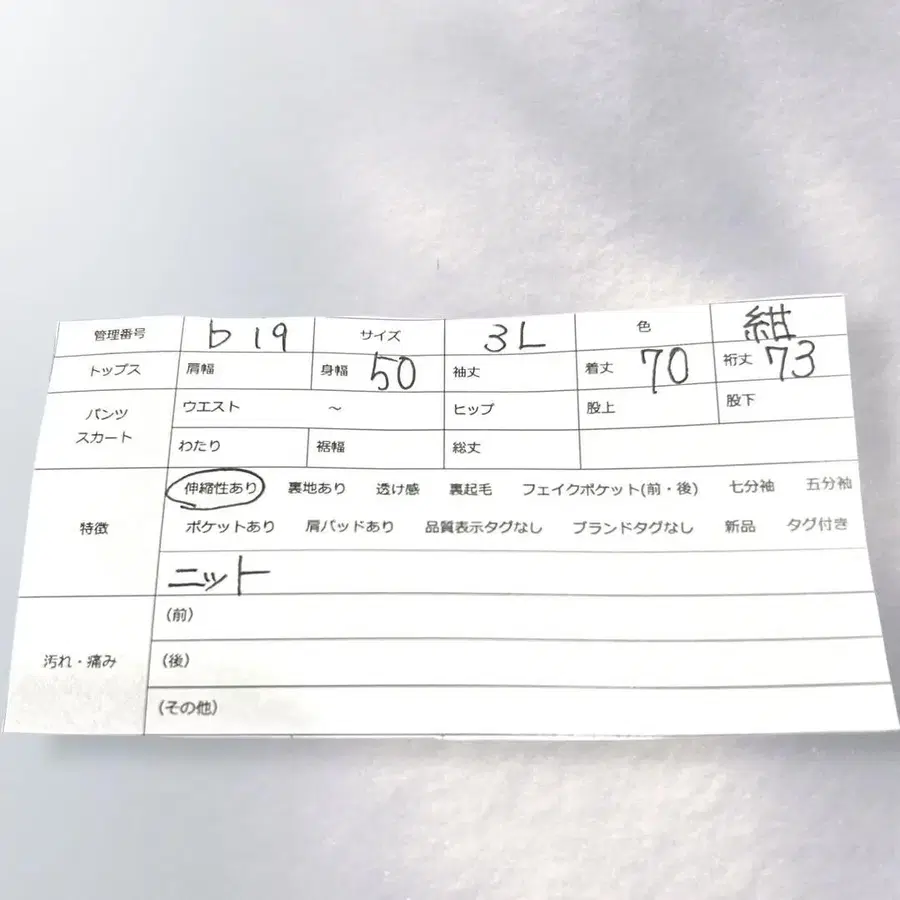 管理番号 b 19 サイズ 3L 色 紺
トップス 肩幅 身幅 50 袖丈 着丈 70 裄丈 73
パンツ スカート ウエスト ～ ヒップ 股上 股下
わたり 裾幅 総丈
特徴 伸縮性あり 裏地あり 透け感 裏起毛 フェイクポケット(前・後) 七分袖 五分袖
ポケットあり 肩パッドあり 品質表示タグなし ブランドタグなし 新品 タグ付き
ニット
汚れ・痛み (前)
(後)
(その他)